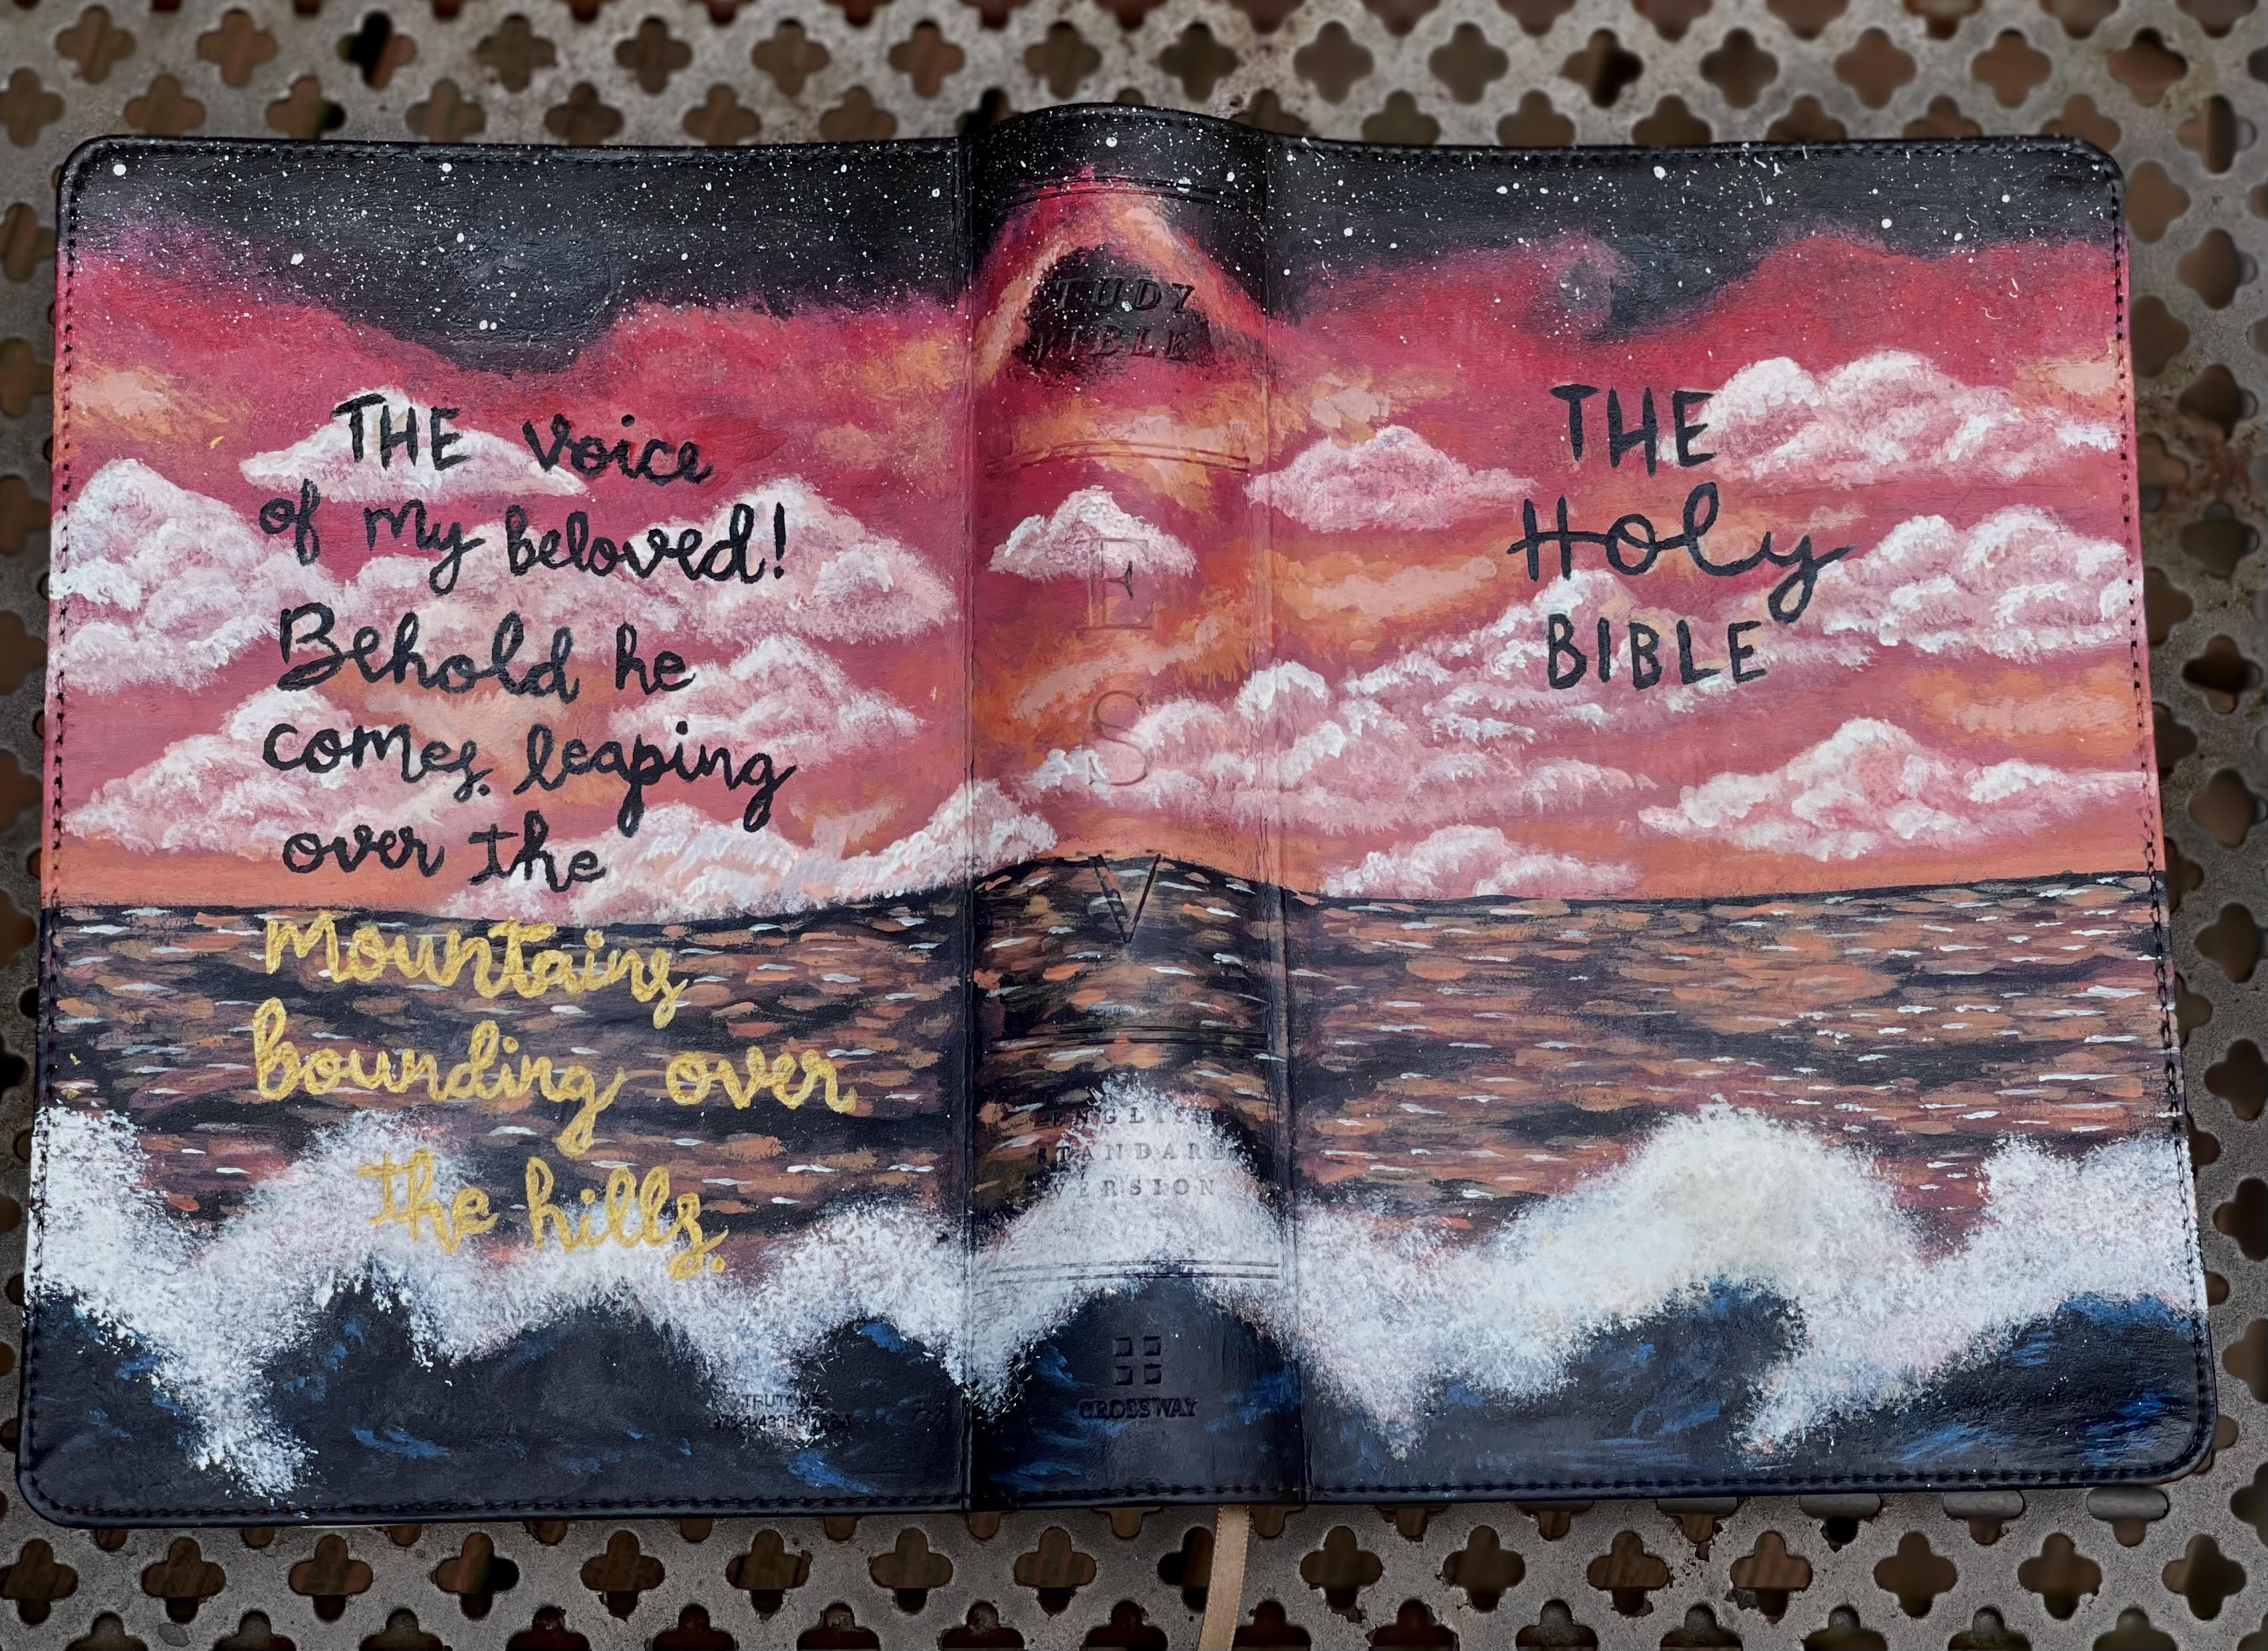 THE voice
of my beloved!
Behold he
comes. leaping
over the
mountains
bounding over
the hills.
TRUTONE
STUDY
BIBLE
E
S
V
ENGLISH
STANDARD
VERSION
CROSSWAY
THE
Holy
BIBLE